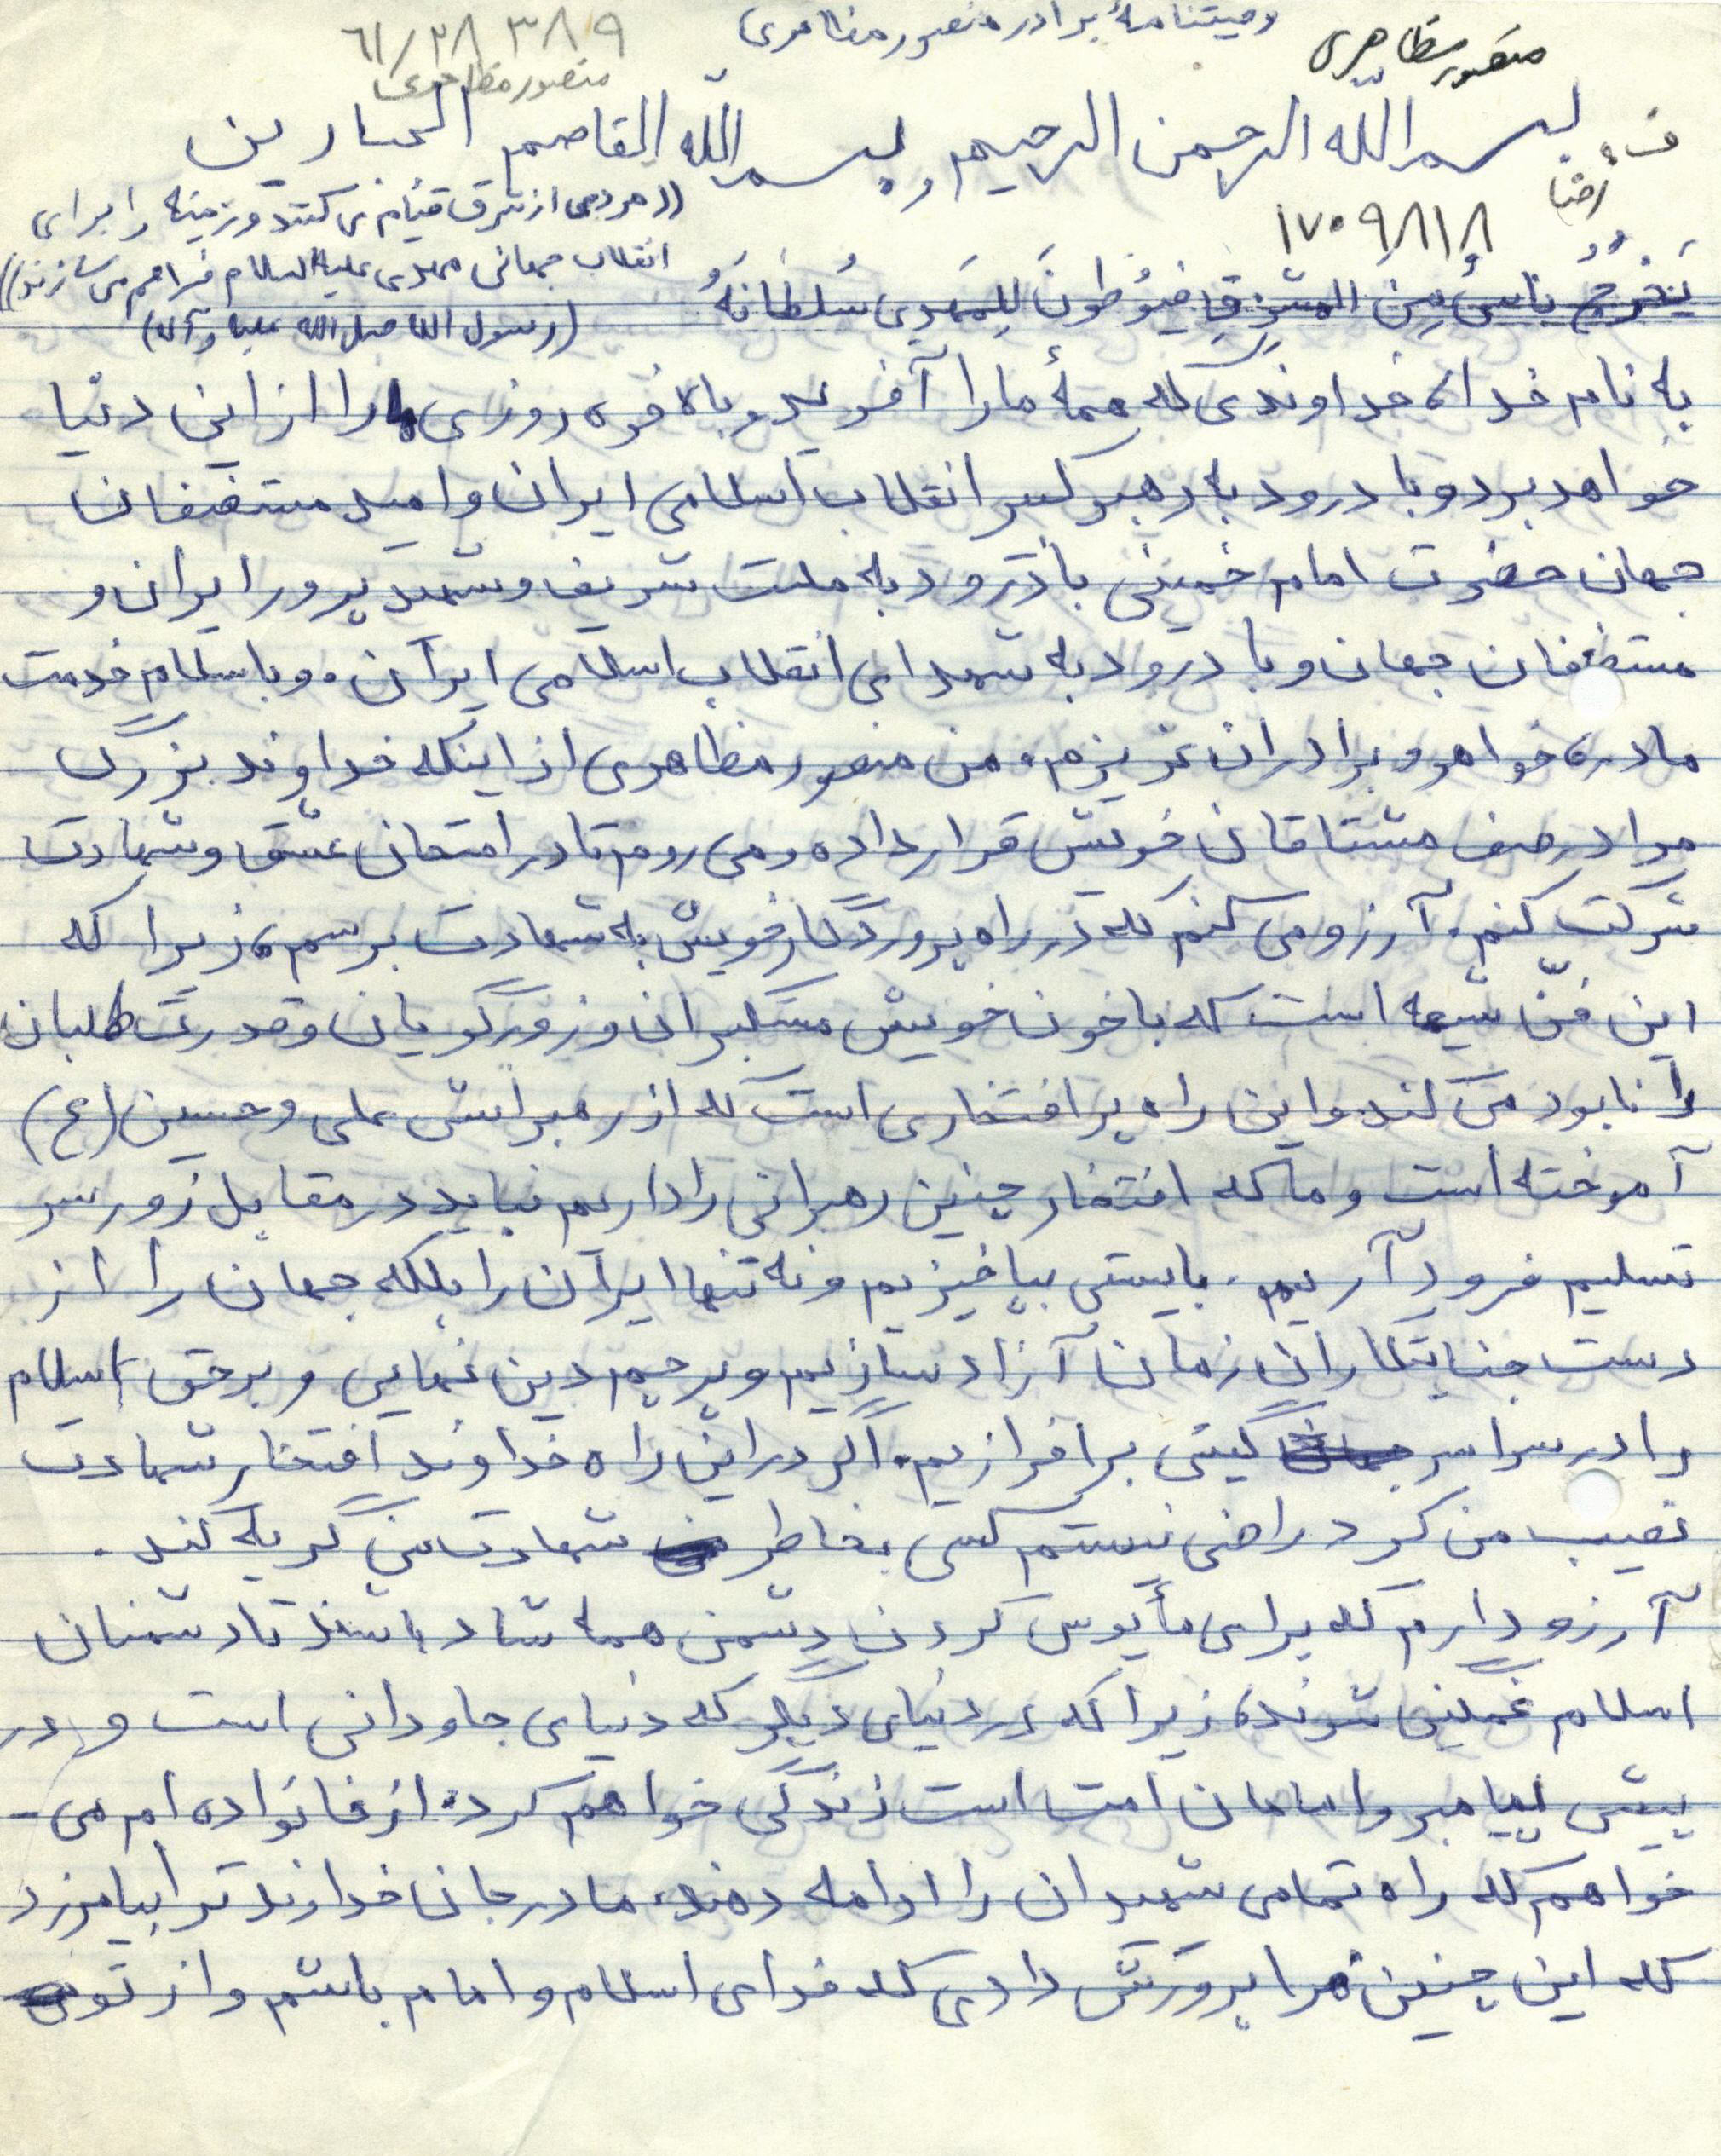 وصیتنامهٔ برادر منصور مظاهری
منصور مظاهری
۶۱/۲۸ ۳۸۰۹
منصور مظاهری
بسم الله الرحمن الرحیم و بسم الله القاصم الجبارین
رضا
۱۷۰۹۸۱۸
((مردمی از شرق قیام می کنند و زمینه را برای
انقلاب جهانی مهدی علیه السلام فراهم می سازند))
(رسول الله صلی الله علیه و آله)
یَخْرُجُ ناسٌ مِنَ المَشرِقِ فَیُوَطِّئونَ لِلمَهدی سُلطانَهُ
به نام خدا، خداوندی که همهٔ ما را آفرید و بالاخره روزی ما را از این دنیا
خواهد برد و با درود به رهبر کبیر انقلاب اسلامی ایران و امید مستضعفان
جهان حضرت امام خمینی با درود به ملت شریف و شهید پرور ایران و
مستضعفان جهان و با درود به شهدای انقلاب اسلامی ایران. و با سلام خدمت
مادر، خواهر و برادران عزیزم. من منصور مظاهری از اینکه خداوند بزرگ
مرا در صف مشتاقان خویش قرار داده و می روم تا در امتحان عشق و شهادت
شرکت کنم. آرزو می کنم که در راه پروردگار خویش به شهادت برسم، زیرا که
این فنّ شیعه است که با خون خویش مستکبران و زورگویان و قدرت طلبان
را نابود می کند و این راه پر افتخاری است که از رهبرانش علی و حسین (ع)
آموخته است و ما که افتخار چنین رهبرانی را داریم نباید در مقابل زور سر
تسلیم فرود آریم. بایستی بپاخیزیم و نه تنها ایران را بلکه جهان را از
دست جنایتکاران زمان آزاد سازیم و پرچم دین نهایی و برحق اسلام
را در سراسر گیتی برافرازیم. اگر در این راه خداوند افتخار شهادت
نصیب من کرد راضی نیستم کسی بخاطر شهادت من گریه کند.
آرزو دارم که برای مأیوس کردن دشمن همه شاد باشند تا دشمنان
اسلام غمگین شوند، زیرا که در دنیای دیگر که دنیای جاودانی است و در
پیش پیامبر و امامان امت است زندگی خواهم کرد. از خانواده ام می-
خواهم که راه تمامی شهیدان را ادامه دهند. مادر جان خداوند ترا بیامرزد
که این چنین مرا پرورش دادی که فدای اسلام و امام باشم و از تو